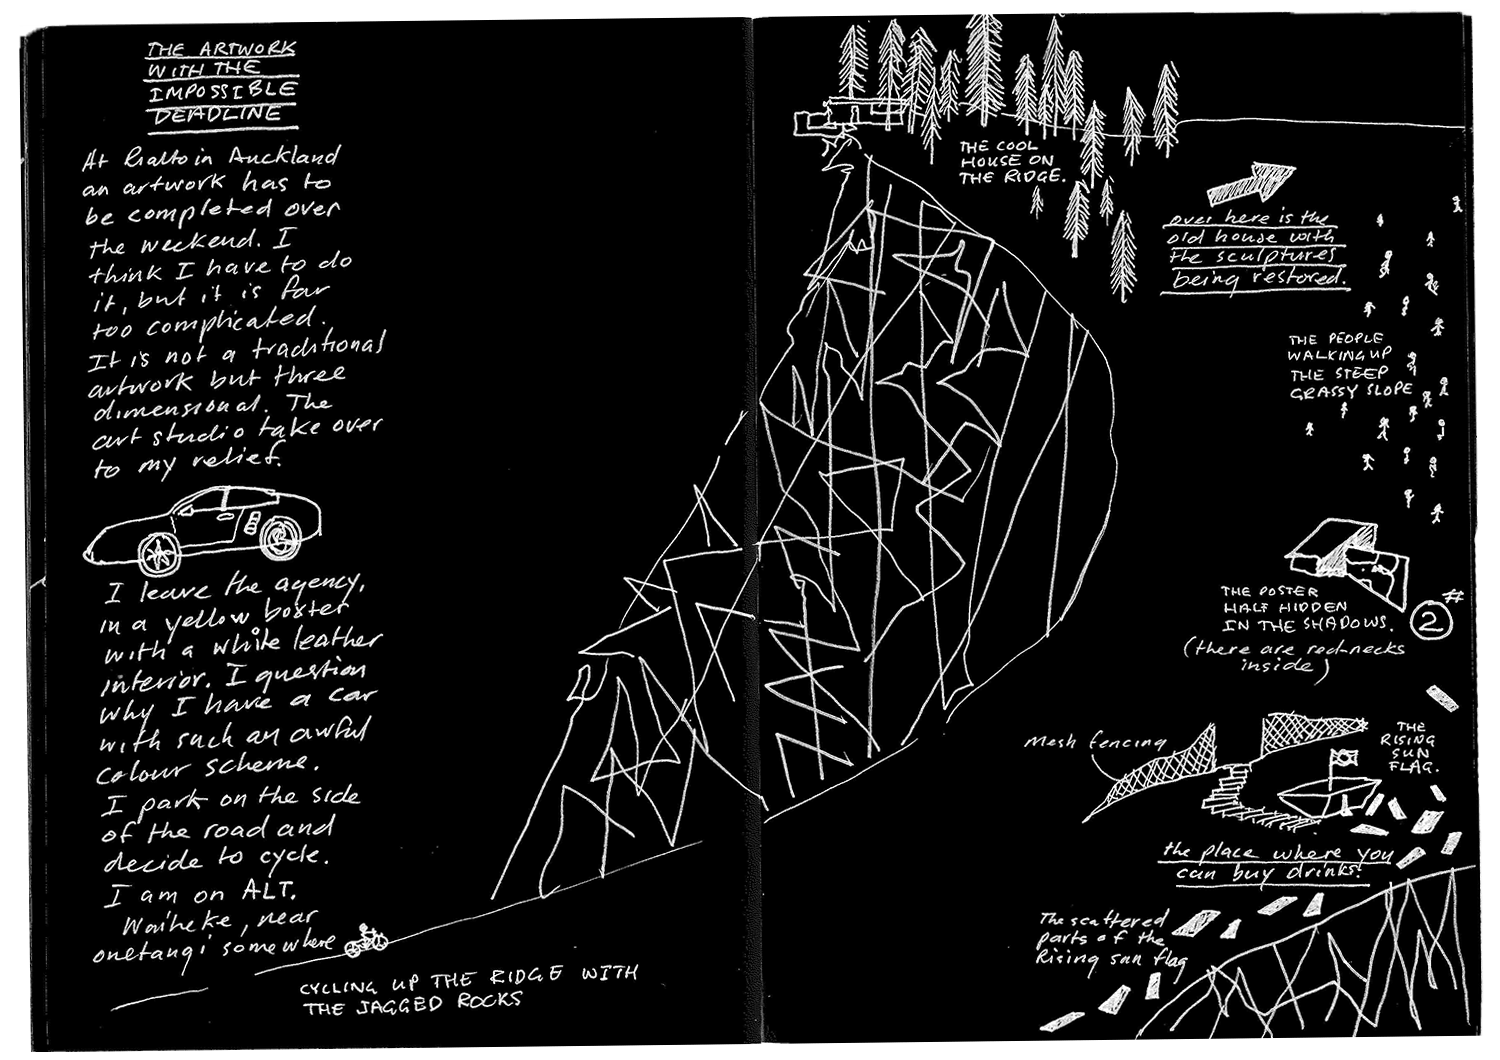 THE ARTWORK
WITH THE
IMPOSSIBLE
DEADLINE
At Rialto in Auckland
an artwork has to
be completed over
the weekend. I
think I have to do
it, but it is far
too complicated.
It is not a traditional
artwork but three
dimensional. The
art studio take over
to my relief.
I leave the agency,
in a yellow boxter
with a white leather
interior. I question
why I have a car
with such an awful
colour scheme.
I park on the side
of the road and
decide to cycle.
I am on ALT.
Waiheke, near
onetangi somewhere
CYCLING UP THE RIDGE WITH
THE JAGGED ROCKS
THE COOL
HOUSE ON
THE RIDGE.
over here is the
old house with
the sculptures
being restored.
THE PEOPLE
WALKING UP
THE STEEP
GRASSY SLOPE
THE POSTER
HALF HIDDEN
IN THE SHADOWS.
#
2
(there are red-necks
inside)
Mesh fencing
THE
RISING
SUN
FLAG.
the place where you
can buy drinks.
The scattered
parts of the
Rising sun flag